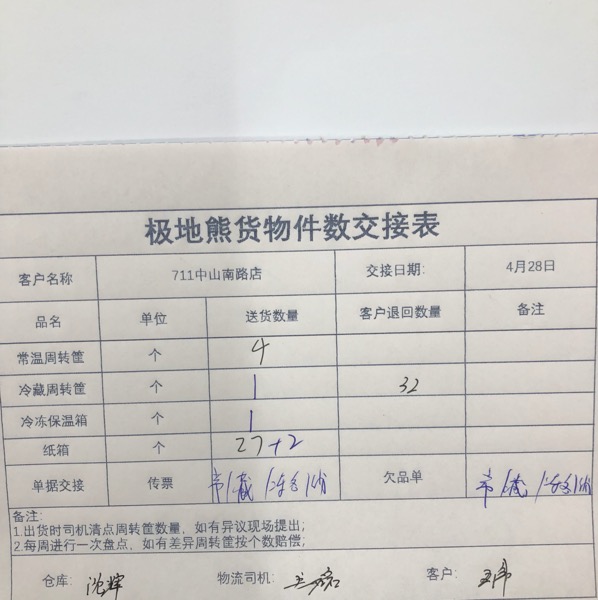 极地熊货物件数交接表
客户名称 711中山南路店 交接日期: 4月28日
品名 单位 送货数量 客户退回数量 备注
常温周转筐 个 4
冷藏周转筐 个 1 32
冷冻保温箱 个 1
纸箱 个 27+2
单据交接 传票 欠品单
备注:
1.出货时司机清点周转筐数量,如有异议现场提出;
2.每周进行一次盘点,如有差异周转筐按个数赔偿;
仓库: 沈辉 物流司机: 客户: